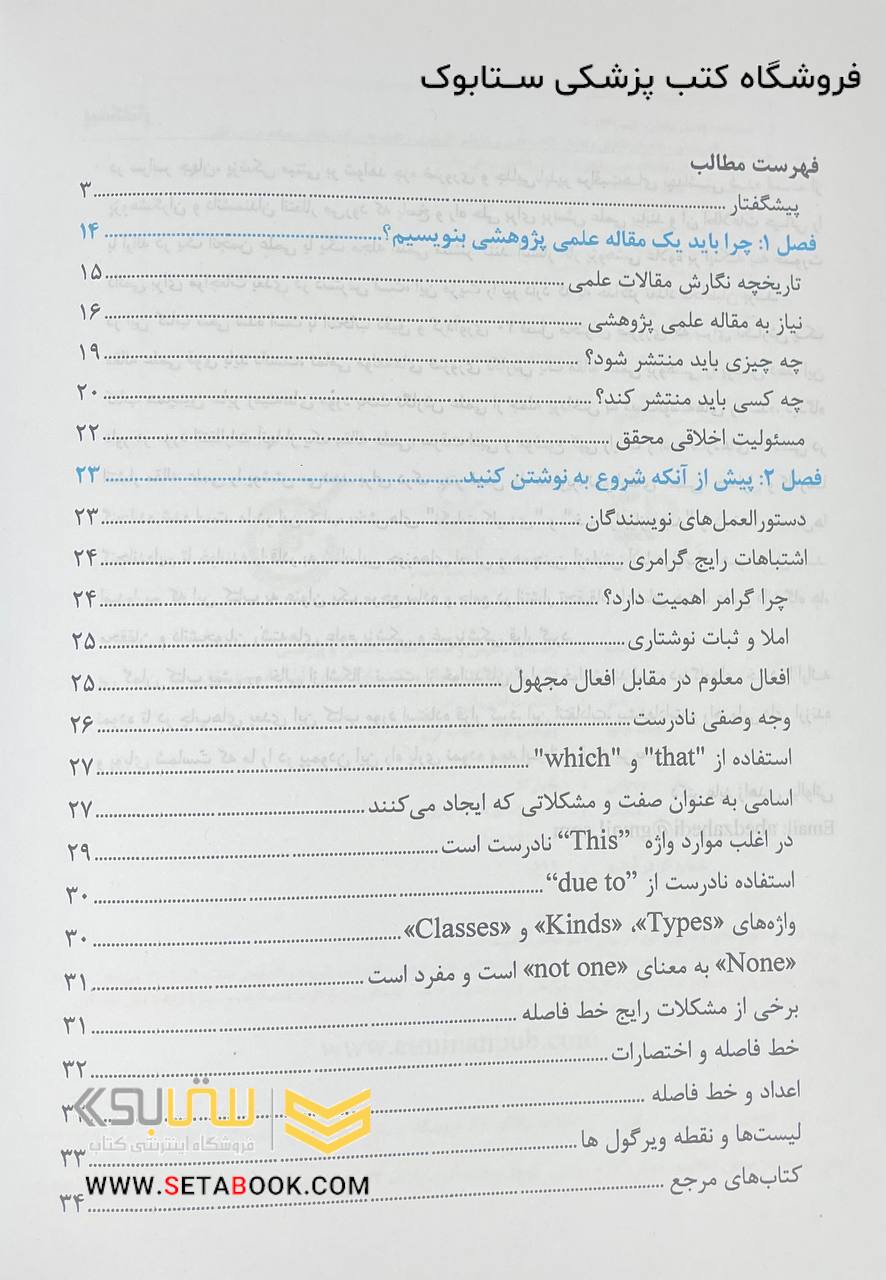 فروشگاه کتب پزشکی ستابوک
فهرست مطالب
پیشگفتار ۳
فصل ۱: چرا باید یک مقاله علمی پژوهشی بنویسیم؟ ۱۴
تاریخچه نگارش مقالات علمی ۱۵
نیاز به مقاله علمی پژوهشی ۱۶
چه چیزی باید منتشر شود؟ ۱۹
چه کسی باید منتشر کند؟ ۲۰
مسئولیت اخلاقی محقق ۲۲
فصل ۲: پیش از آنکه شروع به نوشتن کنید ۲۳
دستورالعمل‌های نویسندگان ۲۳
اشتباهات رایج گرامری ۲۴
چرا گرامر اهمیت دارد؟ ۲۴
املا و ثبات نوشتاری ۲۵
افعال معلوم در مقابل افعال مجهول ۲۵
وجه وصفی نادرست ۲۶
استفاده از "that" و "which" ۲۷
اسامی به عنوان صفت و مشکلاتی که ایجاد می‌کنند ۲۷
در اغلب موارد واژه “This” نادرست است ۲۹
استفاده نادرست از “due to” ۳۰
واژه‌های «Types»، «Kinds» و «Classes» ۳۰
«None» به معنای «not one» است و مفرد است ۳۱
برخی از مشکلات رایج خط فاصله ۳۱
خط فاصله و اختصارات ۳۲
اعداد و خط فاصله
لیست‌ها و نقطه ویرگول ها ۳۳
کتاب‌های مرجع ۳۴
ستابوک
فروشگاه اینترنتی کتاب
WWW.SETABOOK.COM